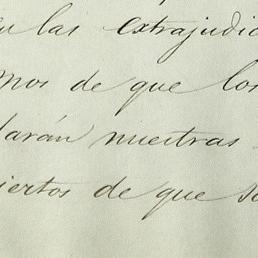 en las extrajudic
mos de que los
darán nuestras
iertos de que se